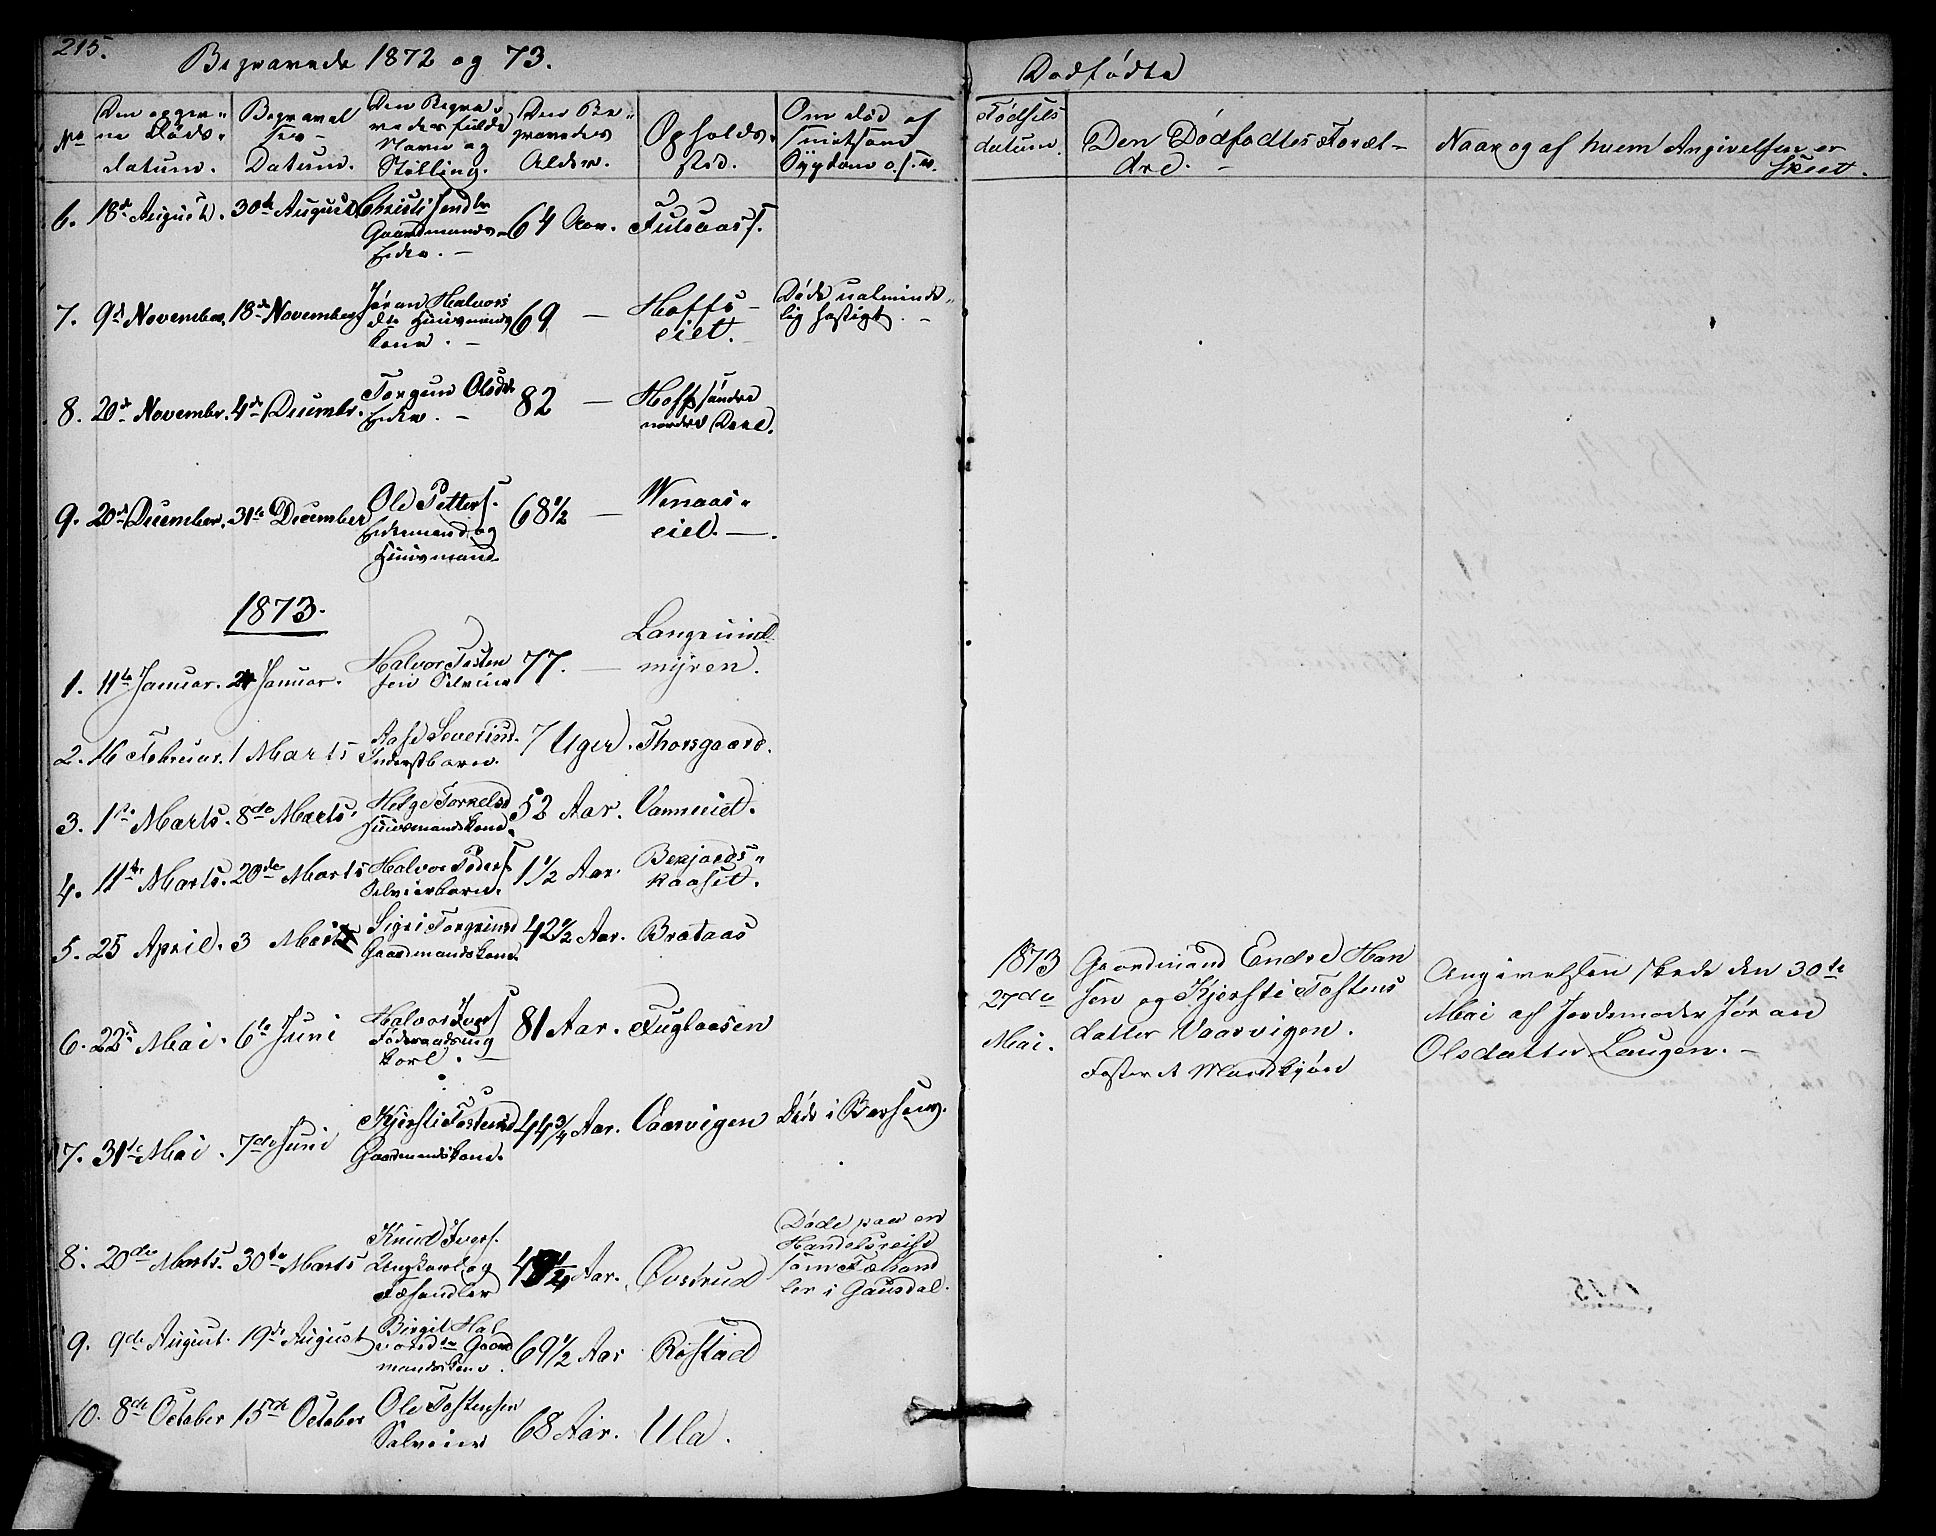 215.
Begravede 1872 og 73.
No
Den opgiv-
ne Døds-
datum.
Begravel
ses-
Datum.
Den Begra-
vedes fulde
Navn og
Stilling.
Den Be-
gravedes
Alder.
Opholds-
sted.
Om død af
smitsom
Sygdom o.s.v.
6. 18de August. 30te August. Christi
Gaardmands-
Enke. -
64 Aar. Fulsaas.
7. 9de November. 18de November. Jøran Halvors
dtr Huusmands
kone. -
69 -
Hoffs-
eiet.
Døde ualminde-
lig hastigt. -
8. 20de Novembr. 4de Decembr. Torgun Olsdtr
Enke. -
82 -
Hoff søndre
nordre Deel.
9. 20de December. 31te December Ole Petters.
Enkemand og
Huusmand.
68½ -
Wenaas-
eiet. -
1873.
1. 11te Januar. 24 Januar. Halvor Tosten
sen Selveier
77. -
Langruind
myren.
2. 16 Februar. 1 Marts Aase Severind.
Inderstbarn.
7 Uger. Thorsgaard.
3. 1ste Marts. 8de Marts. Helge Torkelsd
Huusmandskone.
52 Aar. Vanneiet.
4. 11te Marts. 20de Marts Halvor Peders.
Selveierbarn.
1½ Aar.
Berjords-
kaaset.
5. 25 April. 3 Mai Sigri Torgrimsd
Gaardmandskone.
42½ Aar. Brataas
6. 22de Mai. 6te Juni Halvor Ivers
Føderaadsung
karl. -
81 Aar. Fuglaasen
7. 31te Mai. 7de Juni Kjersti Tostensd
Gaardmandskone.
44¾ Aar. Vaarvigen Døde i Barselseng.
8. 20de Marts. 30te Marts Knud Ivers.
Ungkarl og
Fæhandler
Aar. Øvstrud
Døde paa en
Handelsreise
som Fæhand
ler i Gausdal.
9. 9de August. 19de August Birgit Hal
vorsdtr Gaard
mandskone.
69½ Aar Røstad
10. 8de October 15de October Ole Tostensen
Selveier
68 Aar. Ula.
Dødfødte
Fødsels
datum.
Den Dødfødtes Foræl-
dre. -
Naar og af hvem Angivelsen er
skeet.
1873
27de
Mai.
Gaardmand Endre Han
sen og Kjersti Tostens
datter Vaarvigen.
Foster af Mandkjøn
Angivelsen skede den 30te
Mai af Jordemoder Jøran
Olsdatter Laugen. -